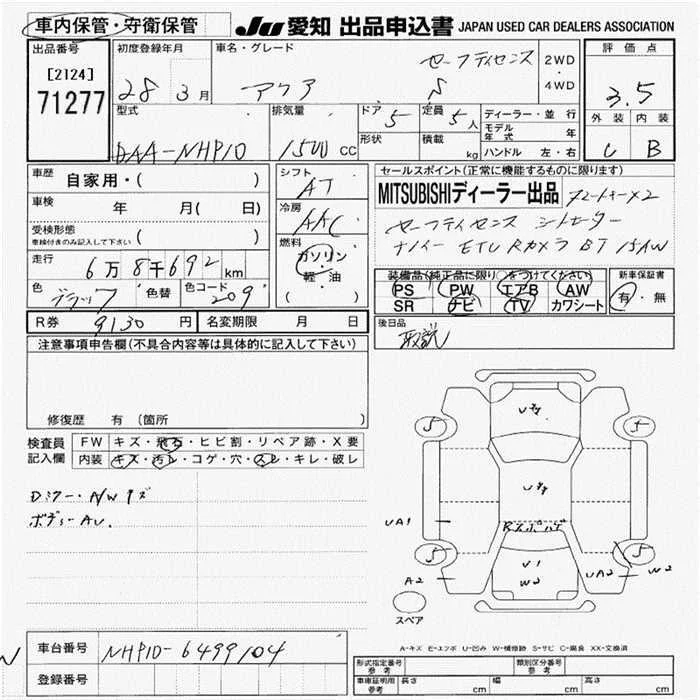 車内保管・守衛保管
JU 愛知 出品申込書 JAPAN USED CAR DEALERS ASSOCIATION
出品番号
[2124]
71277
初度登録年月
28 3月
車名・グレード
アクア
セーフティセンス
S
2WD
・
4WD
評価点
3.5
外装 内装
C B
型式
DAA-NHP10
排気量
1500 CC
ドア 5
形状
定員 5人
積載 kg
ディーラー・並行
モデル年式 年
ハンドル 左・右
車歴
自家用・( )
車検 年 月( 日)
受検形態
車検付きのみ記入して下さい ( )
走行 6万8千692 km
色 ブラック 色替 色コード 209
シフト
AT
冷房
AAC
燃料
ガソリン
・
軽・油
( )
セールスポイント(正常に機能するものに限ります)
MITSUBISHIディーラー出品
セーフティセンス シートヒーター
ナノイー ETC Rカメラ BT 15AW
装備品(純正品に限り○をつけてください)
PS PW エアB AW
SR ナビ TV カワシート
新車保証書
有・無
R券 9130 円 名変期限 月 日
後日品
取説
注意事項申告欄(不具合内容等は具体的に記入して下さい)
修復歴 有(箇所 )
検査員記入欄
FW キズ・飛石・ヒビ割・リペア跡・X要
内装 キズ・汚レ・コゲ・穴・スレ・キレ・破レ
Dミラー・A/Wキズ
ボディーAU.
5
5
5
UA1
A2
U1
W2
UA2
W2
スペア
A-キズ E-エクボ U-凹み W-補修跡 S-サビ C-腐食 XX-交換済
車台番号 NHP10-6499104
登録番号
形式指定番号 参考
類別区分番号 参考
車庫証明用 参考 長さ cm 幅 cm 高さ cm